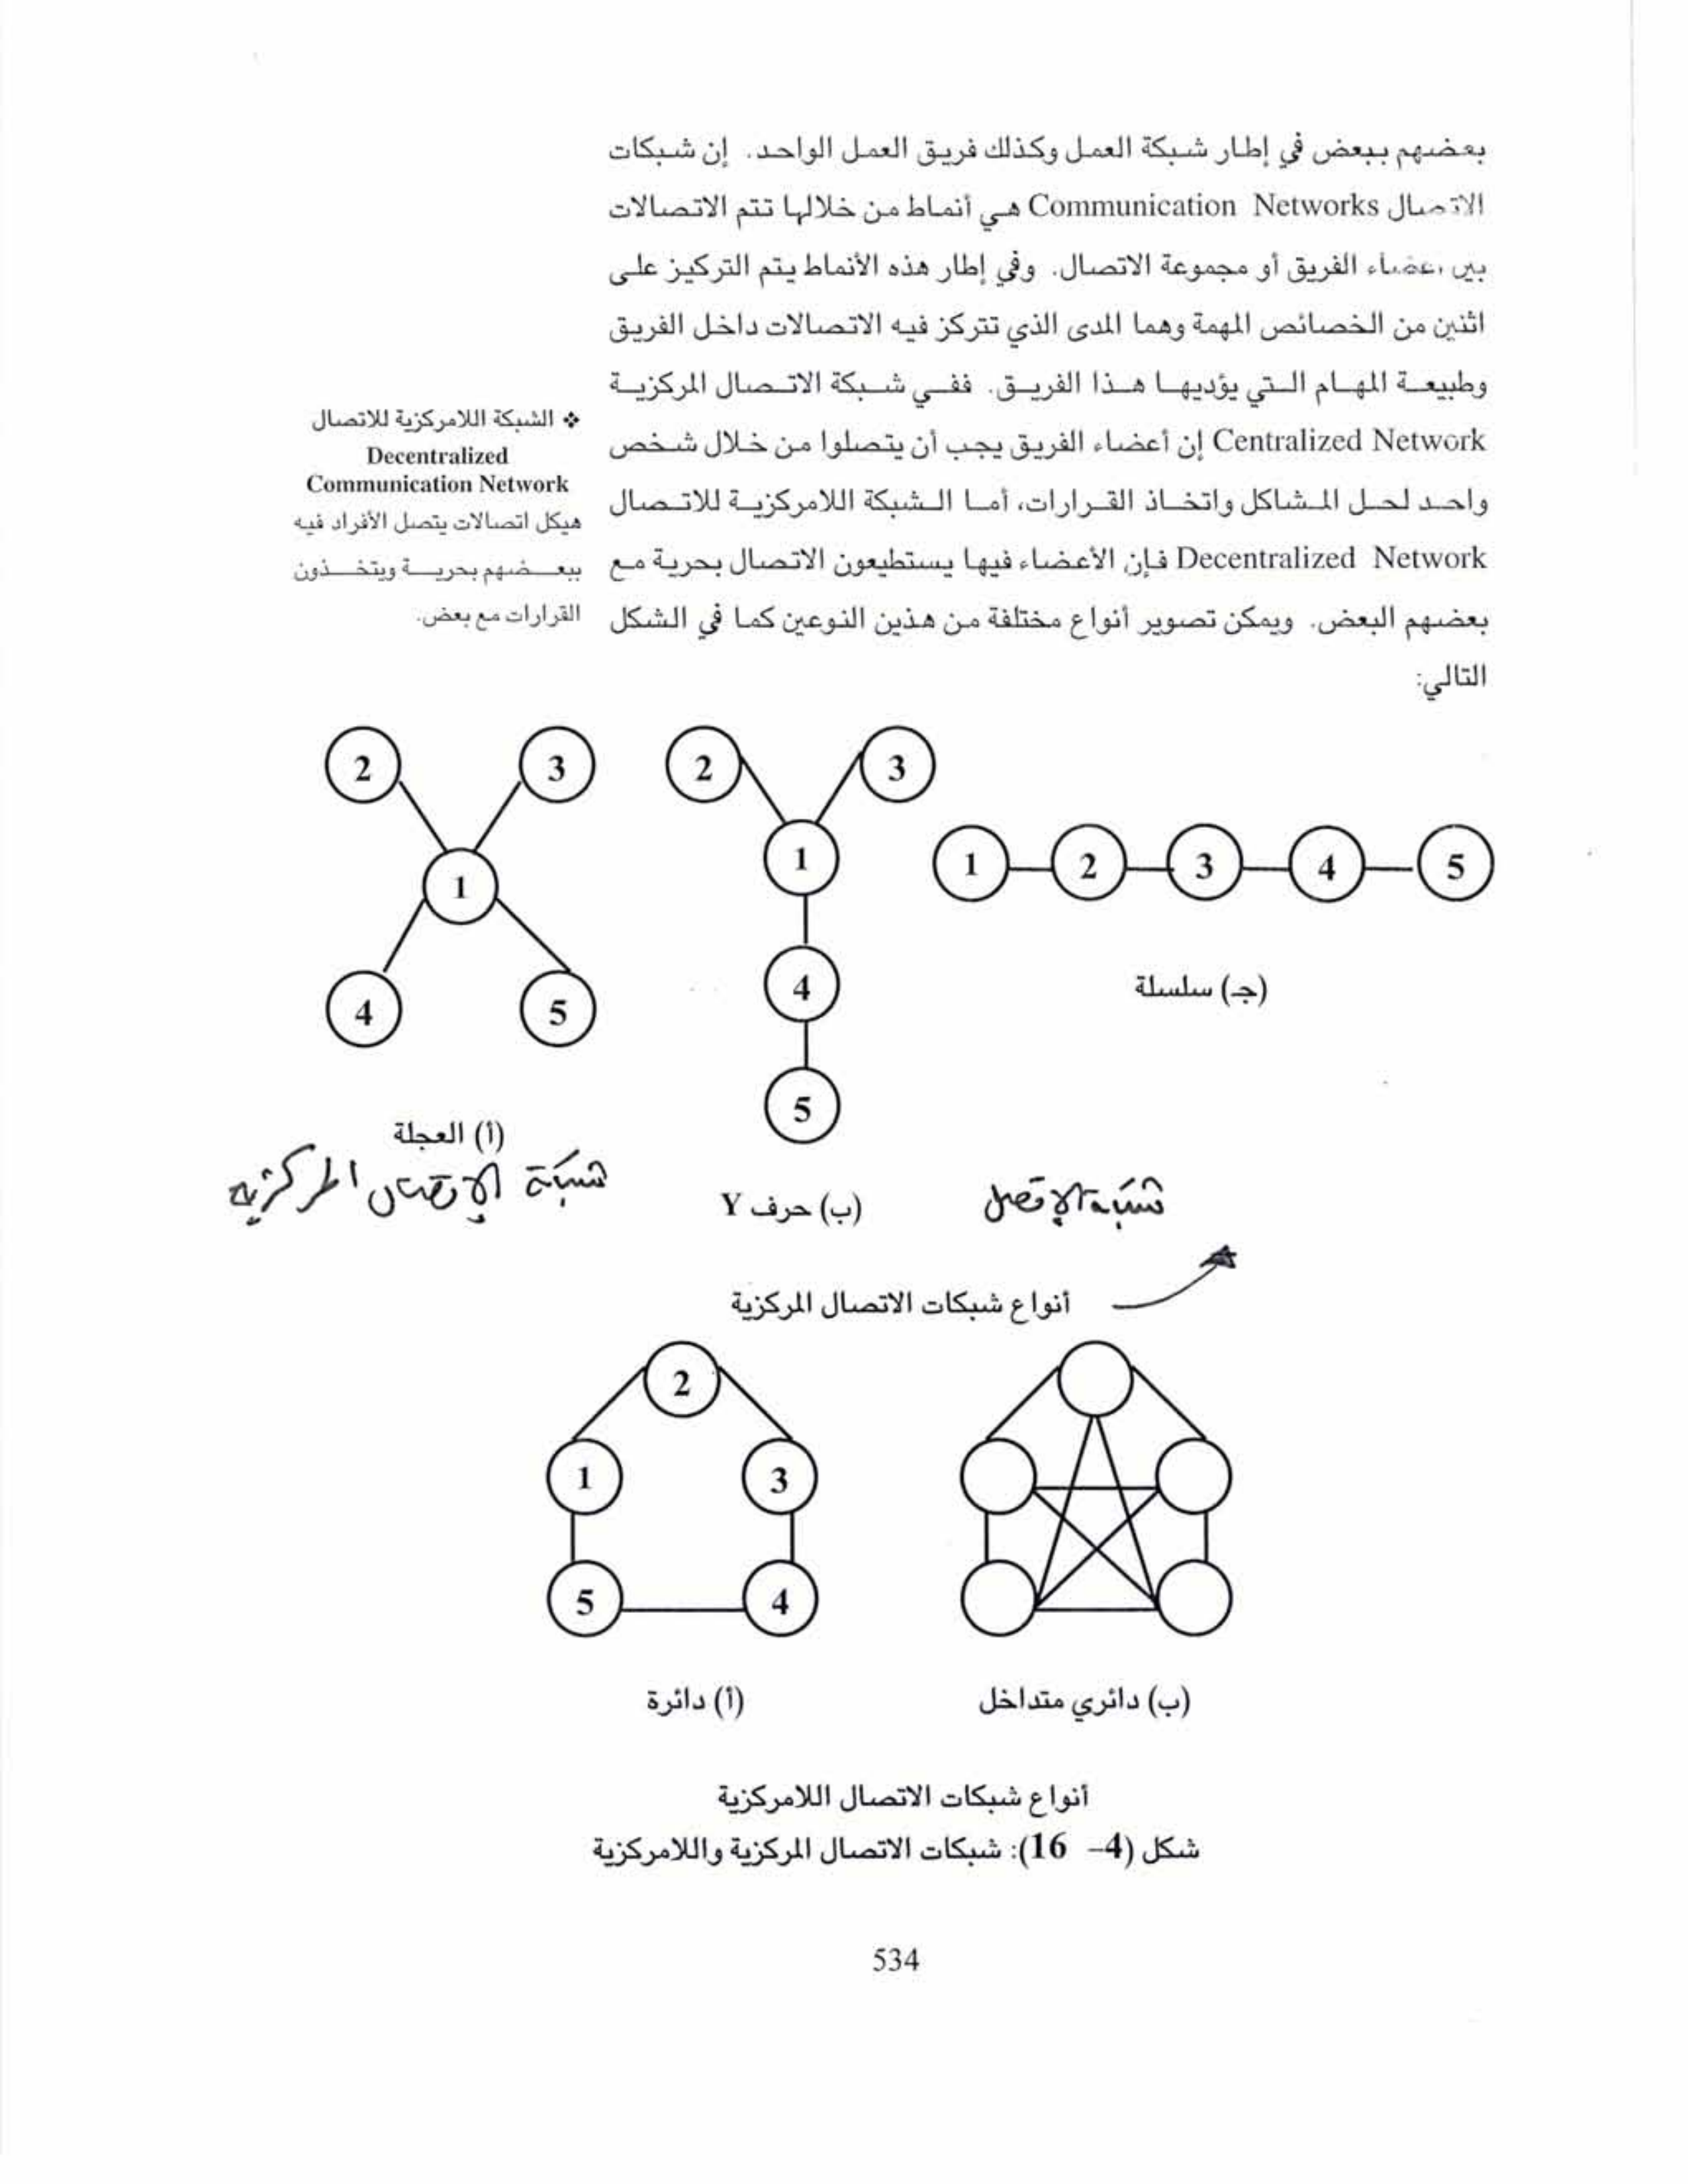 بعضهم ببعض في إطار شبكة العمل وكذلك فريق العمل الواحد. إن شبكات
الاتصال Communication Networks هي أنماط من خلالها تتم الاتصالات
بين أعضاء الفريق أو مجموعة الاتصال. وفي إطار هذه الأنماط يتم التركيز على
اثنين من الخصائص المهمة وهما المدى الذي تتركز فيه الاتصالات داخل الفريق
وطبيعة المهام التي يؤديها هذا الفريق. ففي شبكة الاتصال المركزية
Centralized Network إن أعضاء الفريق يجب أن يتصلوا من خلال شخص
واحد لحل المشاكل واتخاذ القرارات، أما الشبكة اللامركزية للاتصال
Decentralized Network فإن الأعضاء فيها يستطيعون الاتصال بحرية مع
بعضهم البعض. ويمكن تصوير أنواع مختلفة من هذين النوعين كما في الشكل
التالي:
❖ الشبكة اللامركزية للاتصال
Decentralized
Communication Network
هيكل اتصالات يتصل الأفراد فيه
ببعضهم بحرية ويتخذون
القرارات مع بعض.
1 2 3 4 5
(جـ) سلسلة
2 3
1
4
5
(ب) حرف Y
2 3
1
4 5
(أ) العجلة
شبكة الإتصال المركزيه
شبكة الإتصل
أنواع شبكات الاتصال المركزية
2
1 3
5 4
(ب) دائري متداخل
(أ) دائرة
أنواع شبكات الاتصال اللامركزية
شكل (4– 16): شبكات الاتصال المركزية واللامركزية
534